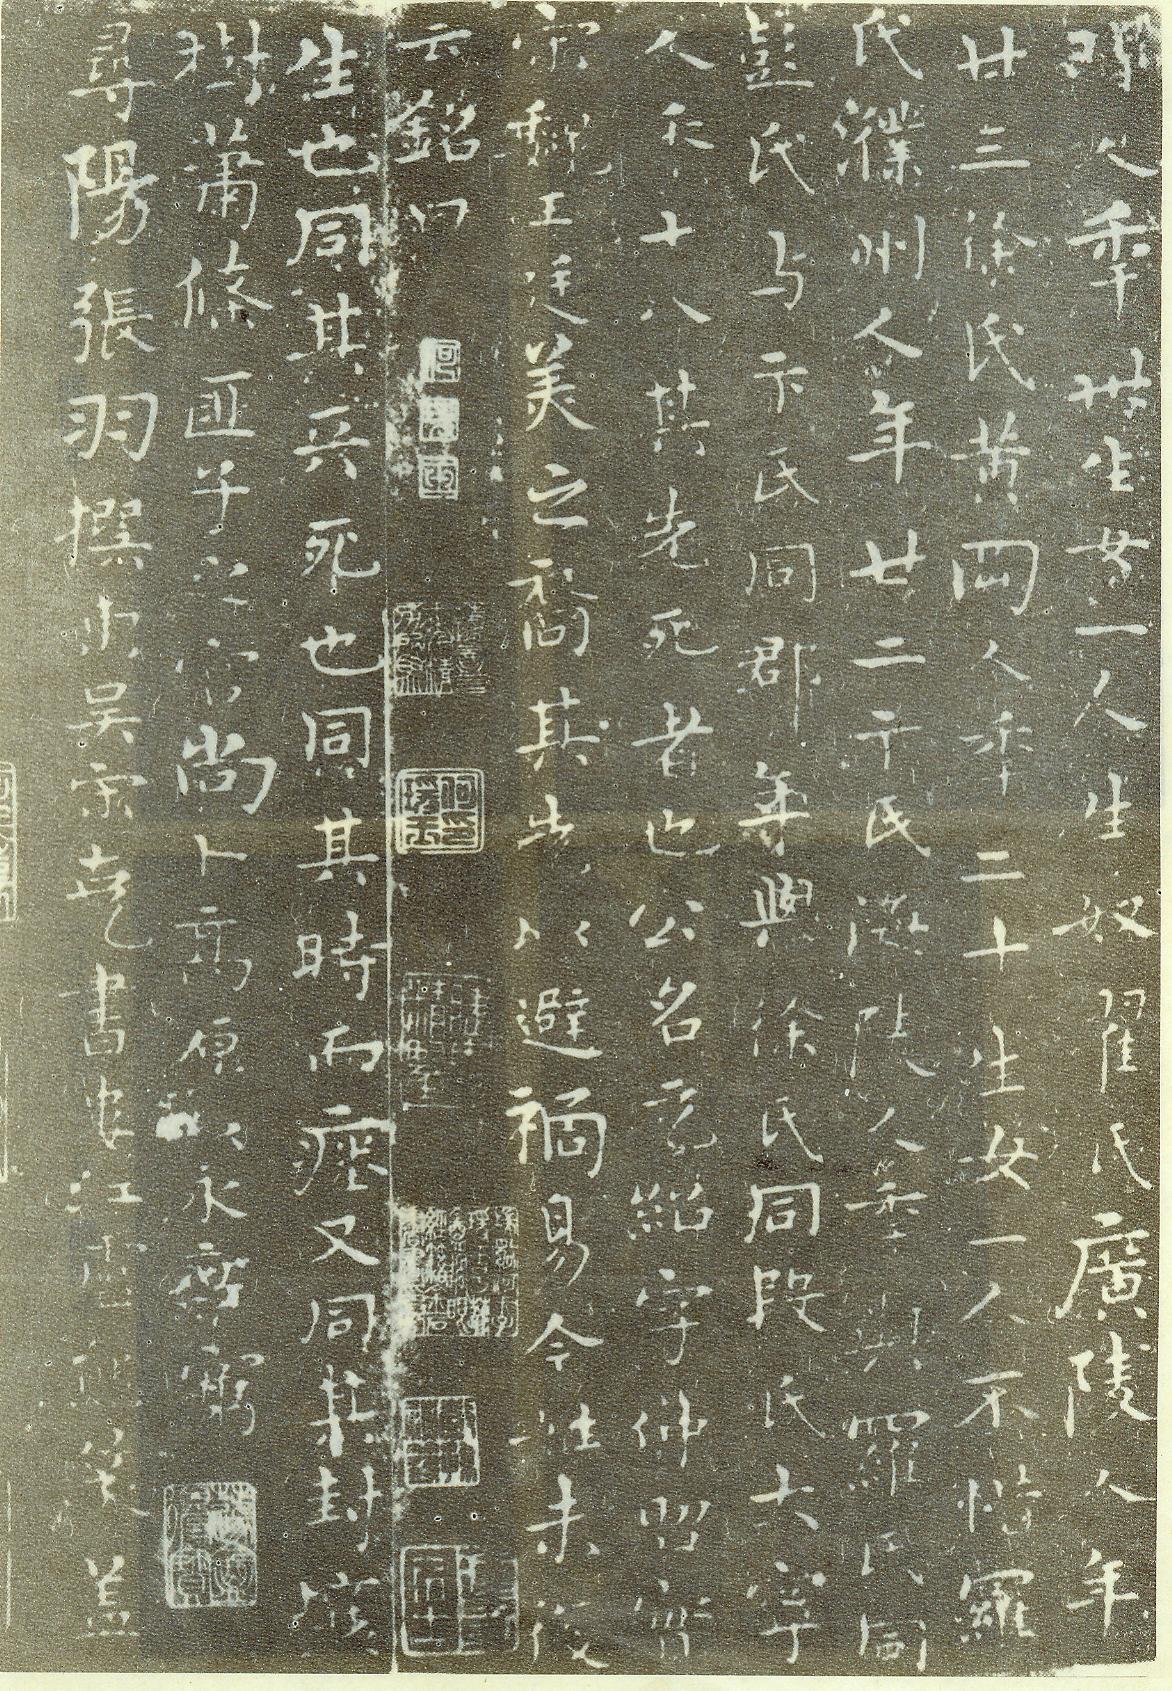 人年卅生女一人生奴翟氏廣陵人年
廿三徐氏黄岡人年二十生女一人不惜羅
氏濮州人年廿二卞氏海陵人年與羅氏同
彭氏与卞氏同郡年與徐氏同段氏大寧
人年十八其先死者也公名元紹字仲昭
宗魏王廷美之裔其先以避禍易今姓未復
云銘曰
生也同其兵死也同其時而瘞又同其封
樹蕭條匪子之宮尚卜高原以永無窮
尋陽張羽撰東吳宋克書盧熊篆蓋